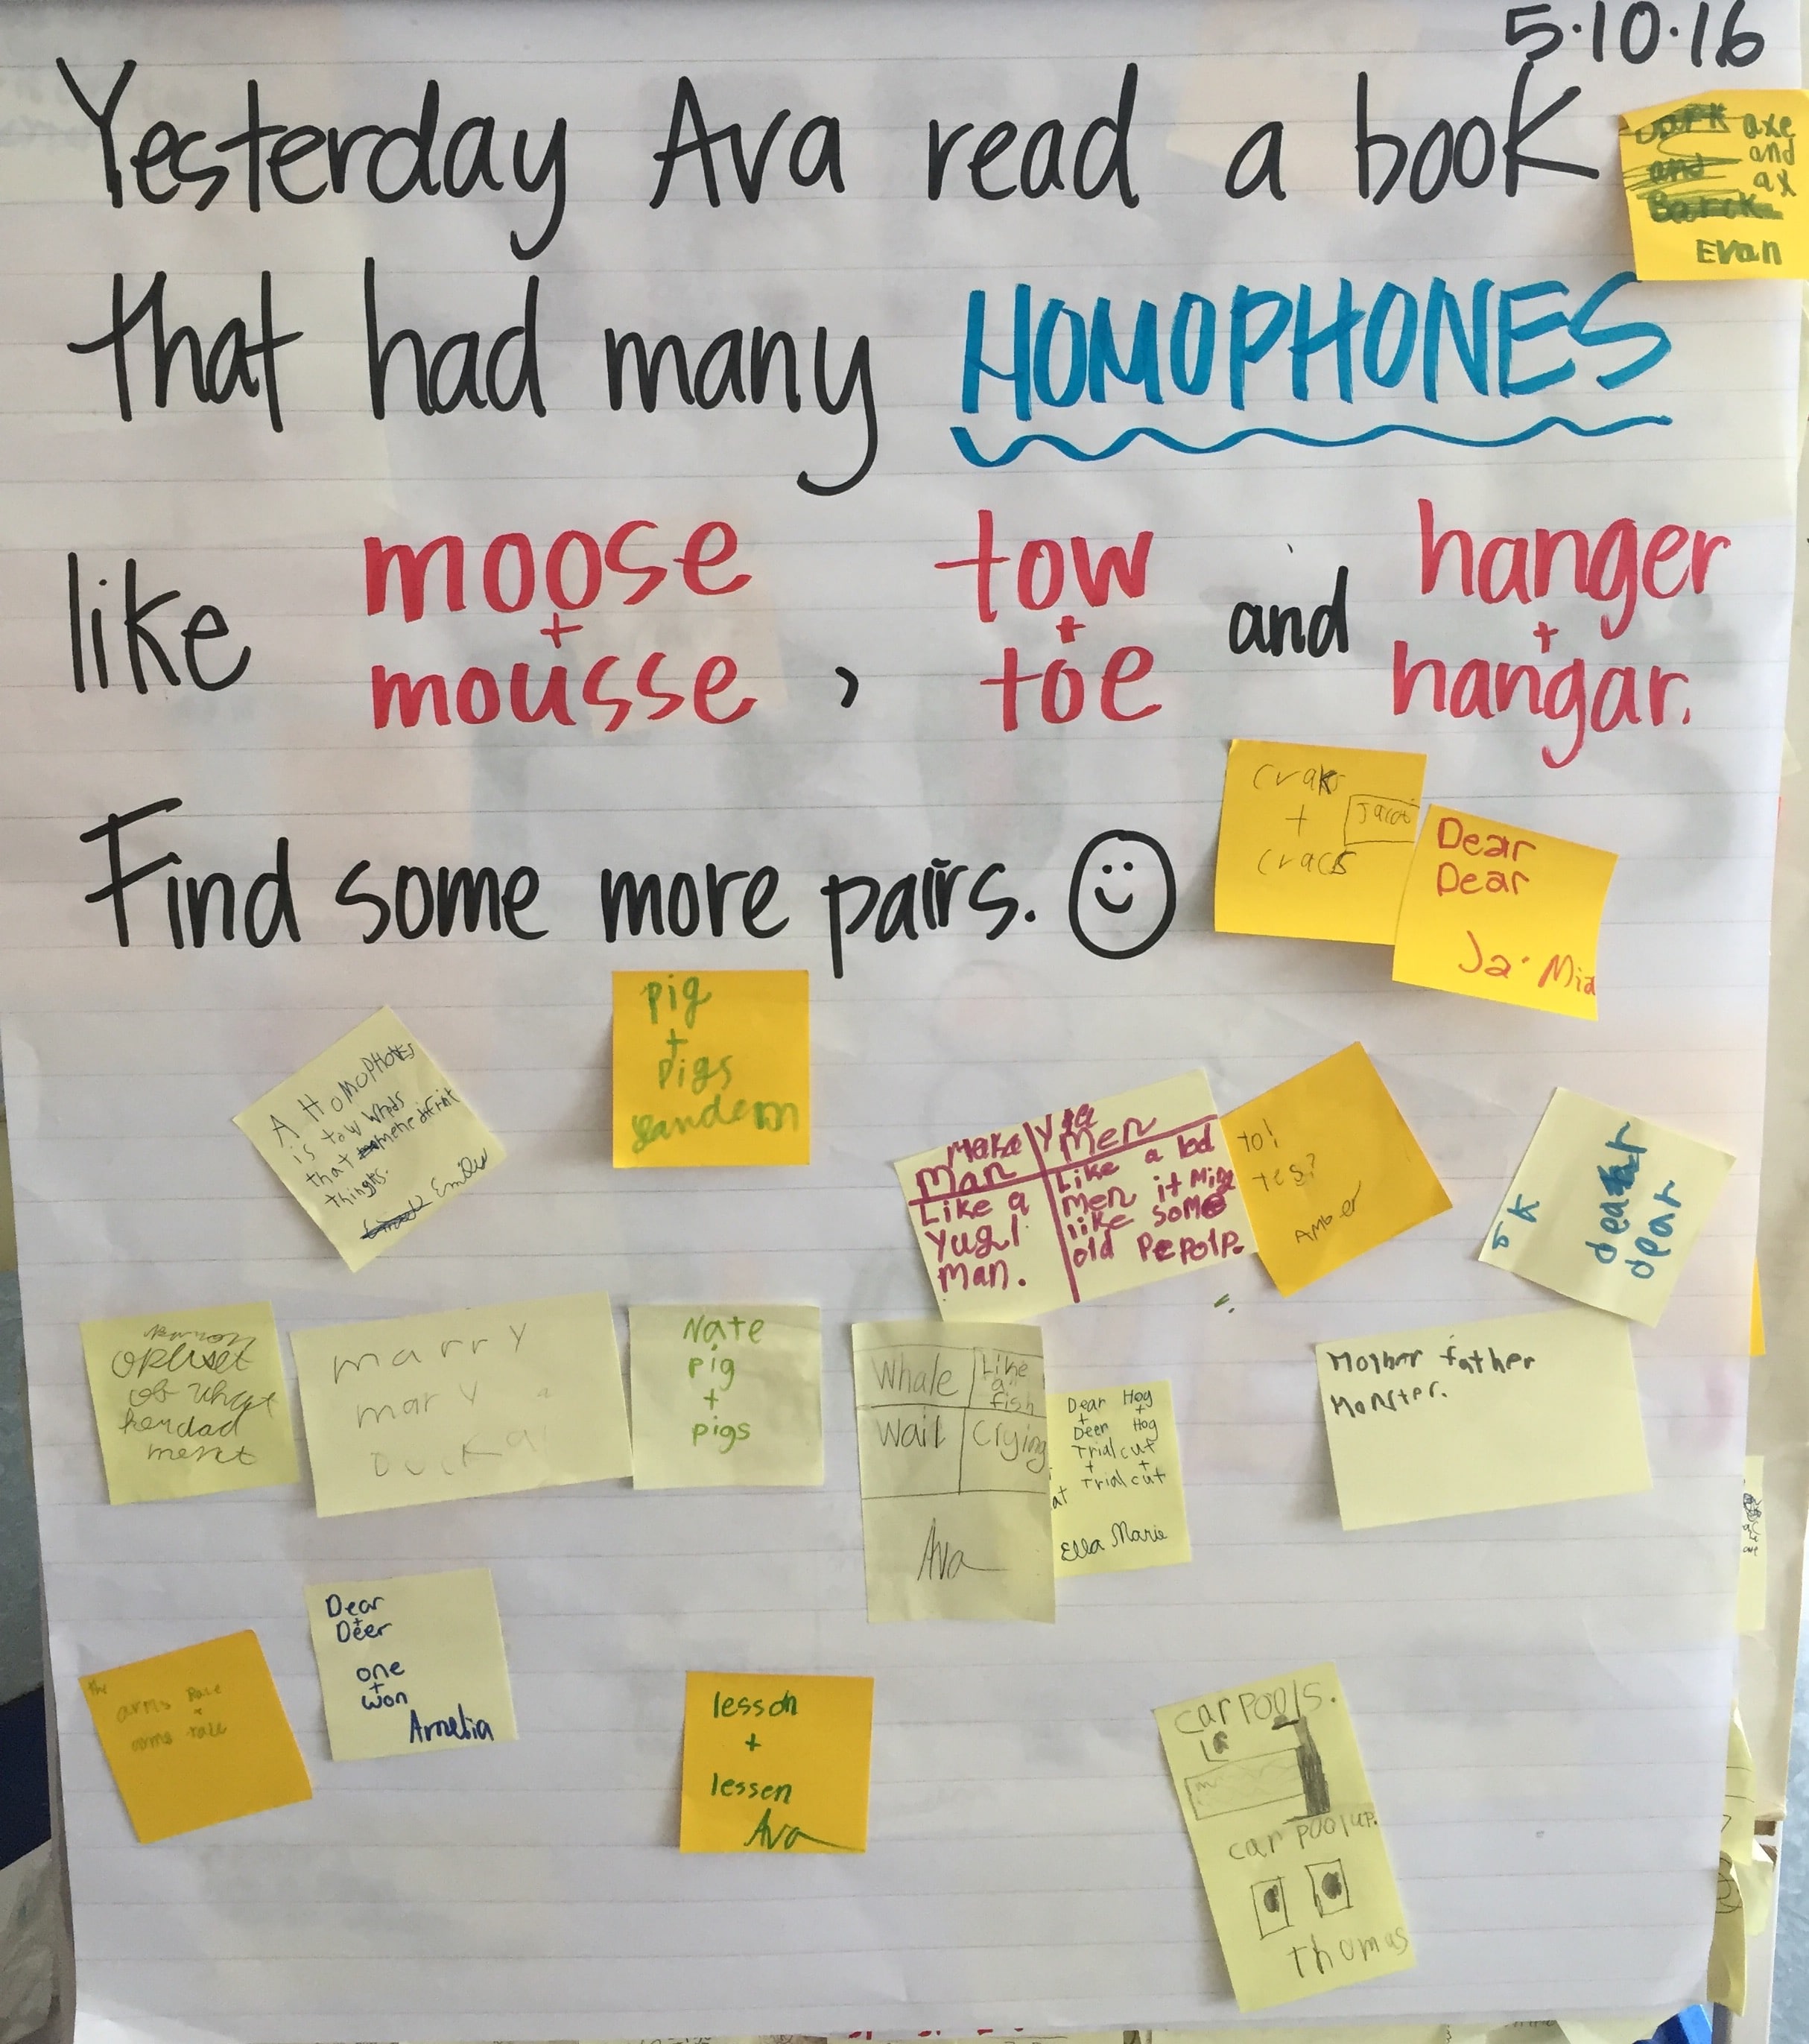 5.10.16
Yesterday Ava read a book
that had many HOMOPHONES
like moose + mousse, tow + toe and hanger + hangar.
Find some more pairs.
axe
and
and
ax
Evan
craks
+
cracs
Jacob
Dear
Dear
Ja'Mia
pig
+
pigs
A HOMOPHONES
is tow
that
things.
Emily
Make
man
Men
Like a
yugl
man.
Like a lod
men it
like some
old Pepolp.
to!
tes?
Amber
dear
dear
opuset
of what
herdad
ment
marry
mary
Nate
pig
+
pigs
Whale
Like
a
fish
Wail
Crying
Ava
Dear
+
Deer
Hog
+
Hog
Trial cut
+
Trial cut
Ella Marie
Mother father
Monster.
the
arms
Dear
+
Deer
one
+
won
Amelia
lesson
+
lessen
Ava
car pools.
car poolup.
thomas